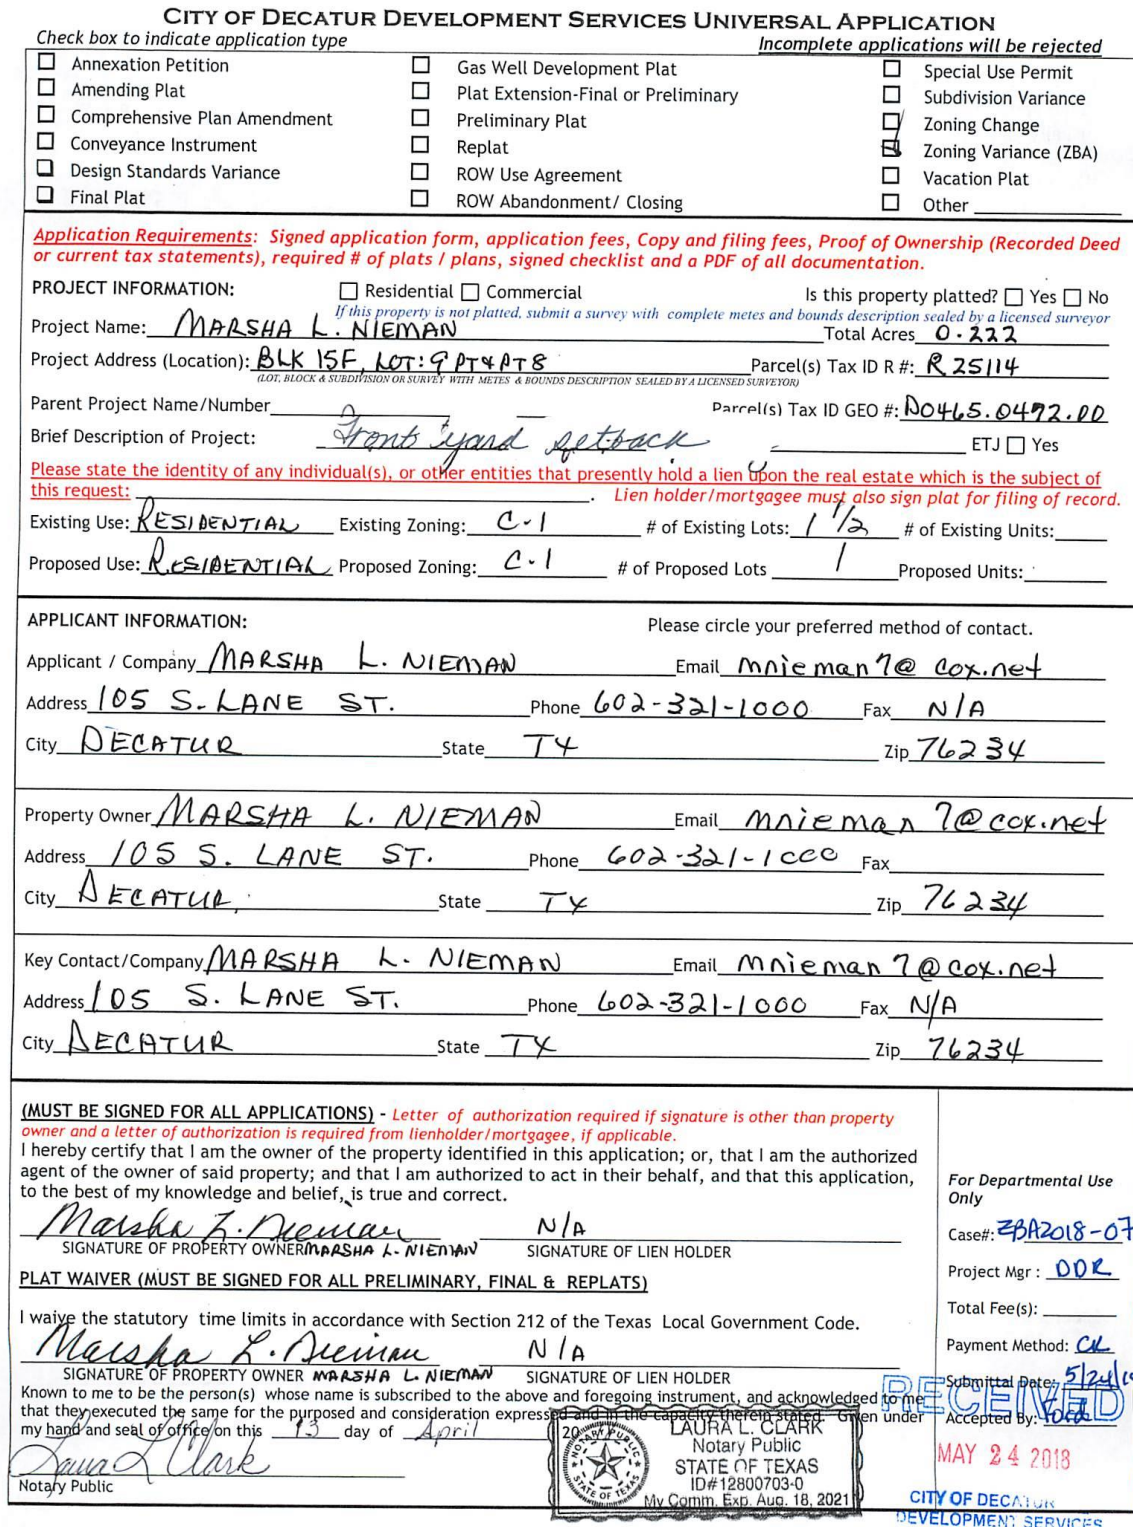 CITY OF DECATUR DEVELOPMENT SERVICES UNIVERSAL APPLICATION
Check box to indicate application type Incomplete applications will be rejected
Annexation Petition Gas Well Development Plat Special Use Permit
Amending Plat Plat Extension-Final or Preliminary Subdivision Variance
Comprehensive Plan Amendment Preliminary Plat Zoning Change
Conveyance Instrument Replat Zoning Variance (ZBA)
Design Standards Variance ROW Use Agreement Vacation Plat
Final Plat ROW Abandonment/ Closing Other
Application Requirements: Signed application form, application fees, Copy and filing fees, Proof of Ownership (Recorded Deed
or current tax statements), required # of plats / plans, signed checklist and a PDF of all documentation.
PROJECT INFORMATION: Residential Commercial Is this property platted? Yes No
If this property is not platted, submit a survey with complete metes and bounds description sealed by a licensed surveyor
Project Name: MARSHA L. NIEMAN Total Acres 0.222
Project Address (Location): BLK 15F, LOT: 9 PT & PT 8 Parcel(s) Tax ID R #: R 25114
(LOT, BLOCK & SUBDIVISION OR SURVEY WITH METES & BOUNDS DESCRIPTION SEALED BY A LICENSED SURVEYOR)
Parent Project Name/Number Parcel(s) Tax ID GEO #: D0465.0472.00
Brief Description of Project: Front yard setback ETJ Yes
Please state the identity of any individual(s), or other entities that presently hold a lien upon the real estate which is the subject of
this request: . Lien holder/mortgagee must also sign plat for filing of record.
Existing Use: RESIDENTIAL Existing Zoning: C-1 # of Existing Lots: 1 1/2 # of Existing Units:
Proposed Use: RESIDENTIAL Proposed Zoning: C-1 # of Proposed Lots 1 Proposed Units:
APPLICANT INFORMATION: Please circle your preferred method of contact.
Applicant / Company MARSHA L. NIEMAN Email mnieman7@cox.net
Address 105 S. LANE ST. Phone 602-321-1000 Fax N/A
City DECATUR State TX Zip 76234
Property Owner MARSHA L. NIEMAN Email mnieman7@cox.net
Address 105 S. LANE ST. Phone 602-321-1000 Fax
City DECATUR, State TX Zip 76234
Key Contact/Company MARSHA L. NIEMAN Email mnieman7@cox.net
Address 105 S. LANE ST. Phone 602-321-1000 Fax N/A
City DECATUR State TX Zip 76234
(MUST BE SIGNED FOR ALL APPLICATIONS) - Letter of authorization required if signature is other than property
owner and a letter of authorization is required from lienholder/mortgagee, if applicable.
I hereby certify that I am the owner of the property identified in this application; or, that I am the authorized
agent of the owner of said property; and that I am authorized to act in their behalf, and that this application,
to the best of my knowledge and belief, is true and correct.
Marsha L. Nieman N/A
SIGNATURE OF PROPERTY OWNER MARSHA L. NIEMAN SIGNATURE OF LIEN HOLDER
PLAT WAIVER (MUST BE SIGNED FOR ALL PRELIMINARY, FINAL & REPLATS)
I waive the statutory time limits in accordance with Section 212 of the Texas Local Government Code.
Marsha L. Nieman N/A
SIGNATURE OF PROPERTY OWNER MARSHA L. NIEMAN SIGNATURE OF LIEN HOLDER
Known to me to be the person(s) whose name is subscribed to the above and foregoing instrument, and acknowledged to me
that they executed the same for the purposed and consideration expressed and in the capacity therein stated. Given under
my hand and seal of office on this 13 day of April 20
Laura L Clark
Notary Public
NOTARY PUBLIC
STATE OF TEXAS
LAURA L. CLARK
Notary Public
STATE OF TEXAS
ID#12800703-0
My Comm. Exp. Aug. 18, 2021
For Departmental Use
Only
Case#: ZBA2018-07
Project Mgr: DDR
Total Fee(s):
Payment Method: CK
Submittal Date: 5/24/
Accepted By:
RECEIVED
MAY 24 2018
CITY OF DECATUR
DEVELOPMENT SERVICES